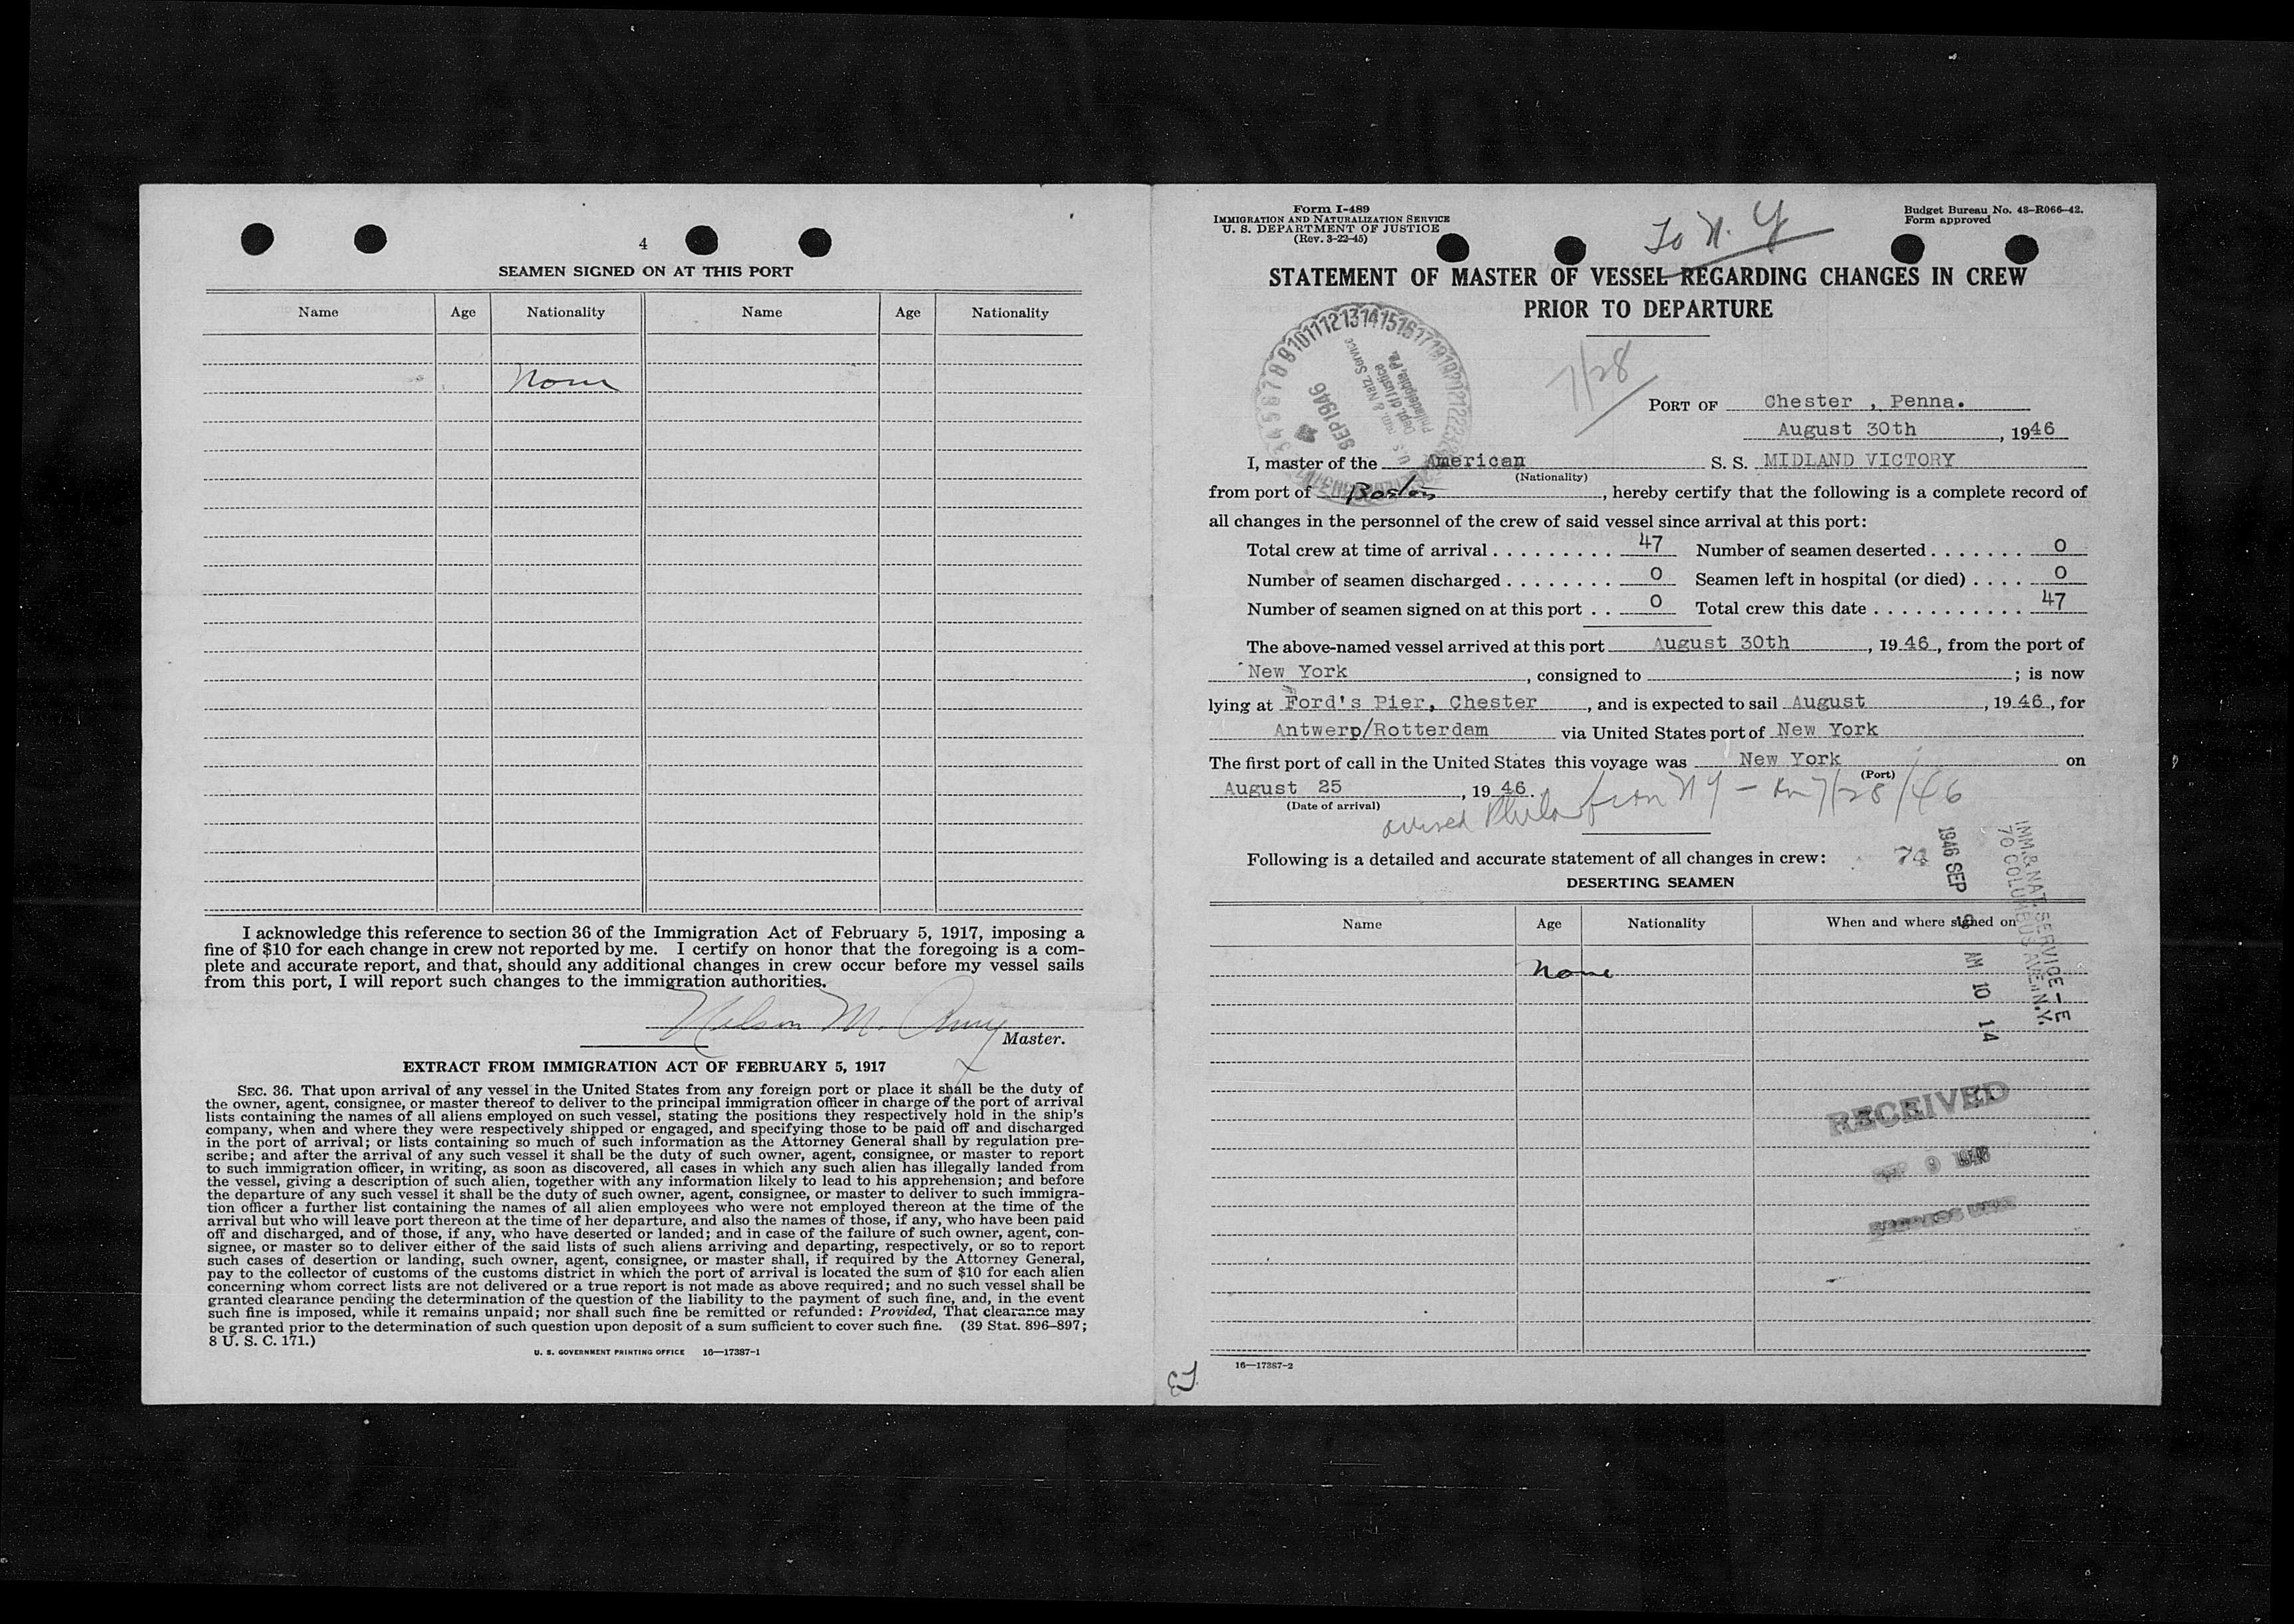 4
SEAMEN SIGNED ON AT THIS PORT
Name Age Nationality Name Age Nationality
None
I acknowledge this reference to section 36 of the Immigration Act of February 5, 1917, imposing a
fine of $10 for each change in crew not reported by me. I certify on honor that the foregoing is a com-
plete and accurate report, and that, should any additional changes in crew occur before my vessel sails
from this port, I will report such changes to the immigration authorities.
Nelson M.
Master.
EXTRACT FROM IMMIGRATION ACT OF FEBRUARY 5, 1917
SEC. 36. That upon arrival of any vessel in the United States from any foreign port or place it shall be the duty of
the owner, agent, consignee, or master thereof to deliver to the principal immigration officer in charge of the port of arrival
lists containing the names of all aliens employed on such vessel, stating the positions they respectively hold in the ship's
company, when and where they were respectively shipped or engaged, and specifying those to be paid off and discharged
in the port of arrival; or lists containing so much of such information as the Attorney General shall by regulation pre-
scribe; and after the arrival of any such vessel it shall be the duty of such owner, agent, consignee, or master to report
to such immigration officer, in writing, as soon as discovered, all cases in which any such alien has illegally landed from
the vessel, giving a description of such alien, together with any information likely to lead to his apprehension; and before
the departure of any such vessel it shall be the duty of such owner, agent, consignee, or master to deliver to such immigra-
tion officer a further list containing the names of all alien employees who were not employed thereon at the time of the
arrival but who will leave port thereon at the time of her departure, and also the names of those, if any, who have been paid
off and discharged, and of those, if any, who have deserted or landed; and in case of the failure of such owner, agent, con-
signee, or master so to deliver either of the said lists of such aliens arriving and departing, respectively, or so to report
such cases of desertion or landing, such owner, agent, consignee, or master shall, if required by the Attorney General,
pay to the collector of customs of the customs district in which the port of arrival is located the sum of $10 for each alien
concerning whom correct lists are not delivered or a true report is not made as above required; and no such vessel shall be
granted clearance pending the determination of the question of the liability to the payment of such fine, and, in the event
such fine is imposed, while it remains unpaid; nor shall such fine be remitted or refunded: Provided, That clearance may
be granted prior to the determination of such question upon deposit of a sum sufficient to cover such fine. (39 Stat. 896–897;
8 U. S. C. 171.)
U. S. GOVERNMENT PRINTING OFFICE 16—17387-1
Form I-489
IMMIGRATION AND NATURALIZATION SERVICE
U. S. DEPARTMENT OF JUSTICE
(Rev. 3-22-45)
To N. Y
Budget Bureau No. 43–R066–42.
Form approved
STATEMENT OF MASTER OF VESSEL REGARDING CHANGES IN CREW
PRIOR TO DEPARTURE
SEP 1946
Dept. of Justice
Philadelphia, Pa.
7/28
PORT OF Chester , Penna.
August 30th , 1946
I, master of the American S. S. MIDLAND VICTORY
(Nationality)
from port of Boston , hereby certify that the following is a complete record of
all changes in the personnel of the crew of said vessel since arrival at this port:
Total crew at time of arrival . . . . . . . . . 47 Number of seamen deserted . . . . . . . 0
Number of seamen discharged . . . . . . . . 0 Seamen left in hospital (or died) . . . . 0
Number of seamen signed on at this port . . 0 Total crew this date . . . . . . . . . . . . 47
The above-named vessel arrived at this port August 30th , 19 46 , from the port of
New York , consigned to ; is now
lying at Ford's Pier, Chester , and is expected to sail August , 19 46 , for
Antwerp/Rotterdam via United States port of New York
The first port of call in the United States this voyage was New York on
(Port)
August 25 , 19 46 .
(Date of arrival)
arrived Phila from NY - on 7/28/46
Following is a detailed and accurate statement of all changes in crew:
DESERTING SEAMEN
Name Age Nationality When and where signed on
None
IMM. & NAT. SERVICE - E
70 COLUMBUS AVE., N.Y.
1946 SEP 10 AM 10 14
RECEIVED
16—17387-2